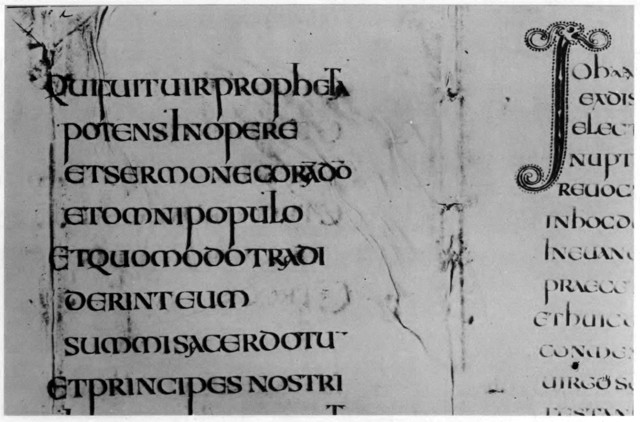 QUIFUITUIRPROPHETA
POTENSINOPERE
ETSERMONECORĀDŌ
ETOMNIPOPULO
ETQUOMODOTRADI
DERINTEUM
SUMMISACERDOTU¯
ETPRINCIPES NOSTRI
Joha
exdis
elect
nupt
revoc
inhocd
Ineuan
praece
ethuic
commen
uirgo
testan